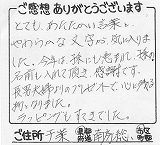 ご感想 ありがとうございます
とても、あたたかい言葉と
やわらかな文字が、気に入りま
した。今年は、孫にも恵まれ、孫の
名前も入れて頂き、感謝です。
長寿夫婦りのプレゼントで、心に残る
物になりました。
ラッピングもすてきでした。
ご住所 千葉 都道府県 南房総 市区町村